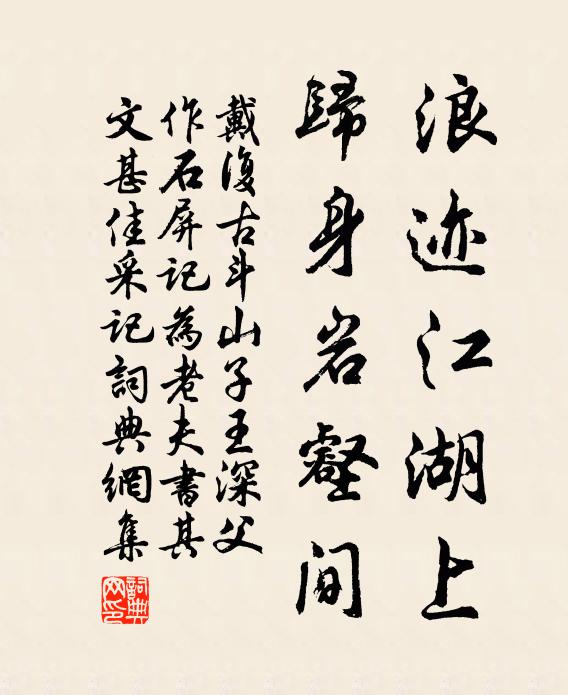 浪迹江湖上
歸身岩壑間
戴復古斗山子王深父
作石屏記為老夫書其
文甚佳采記詞典網集
詞典網印